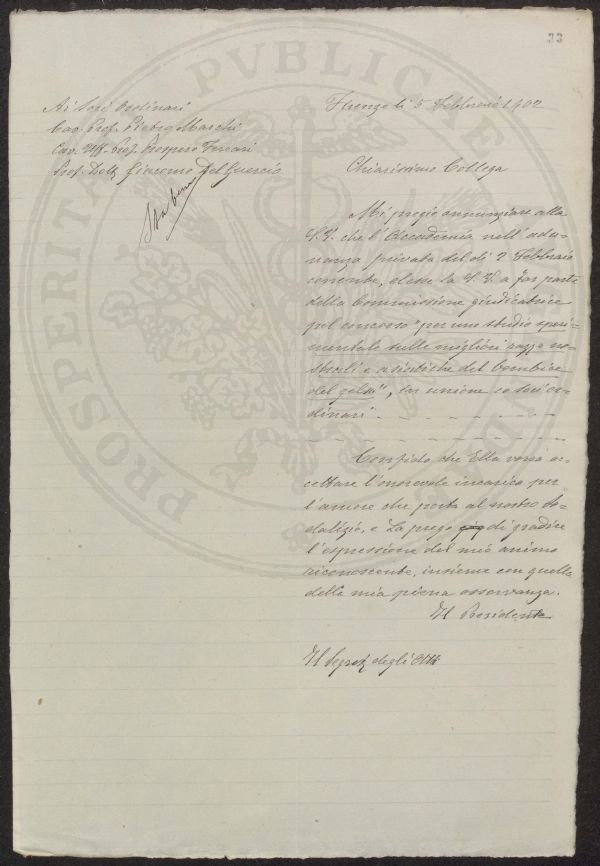 33
Ai Soci Ordinari
Cav. Prof. Pietro Marchi
Cav. Uff. Prof. Prospero Ferrari
Prof. Dott. Giacomo Del Guercio
Sta bene
Firenze li 5 Febbraio 1902
Chiarissimo Collega
Mi pregio annunziare alla
S. V. che l'Accademia nell'adu-
nanza privata del dì 2 Febbraio
corrente, elesse la S. V. a far parte
della Commissione giudicatrice
pel concorso "per uno studio speri-
mentale sulle migliori razze no-
strali e asiatiche del bombice
del gelso", in unione ai soci or-
dinari
Confido che Ella vorrà ac-
cettare l'onorevole incarico per
l'amore che porta al nostro So-
dalizio, e La prego di gradire
l'espressione del mio animo
riconoscente, insieme con quella
della mia piena osservanza.
Il Presidente
Il Segret. degli Atti
PROSPERITA PVBLICAE